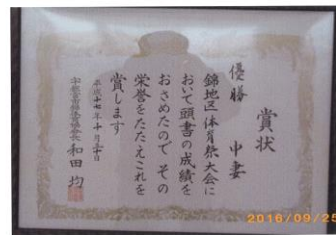 賞状
優勝 中妻
錦地区体育祭大会に
おいて頭書の成績を
おさめたので その
栄誉をたたえこれを
賞します
平成十七年十月三十日
和田 均
2016/09/25